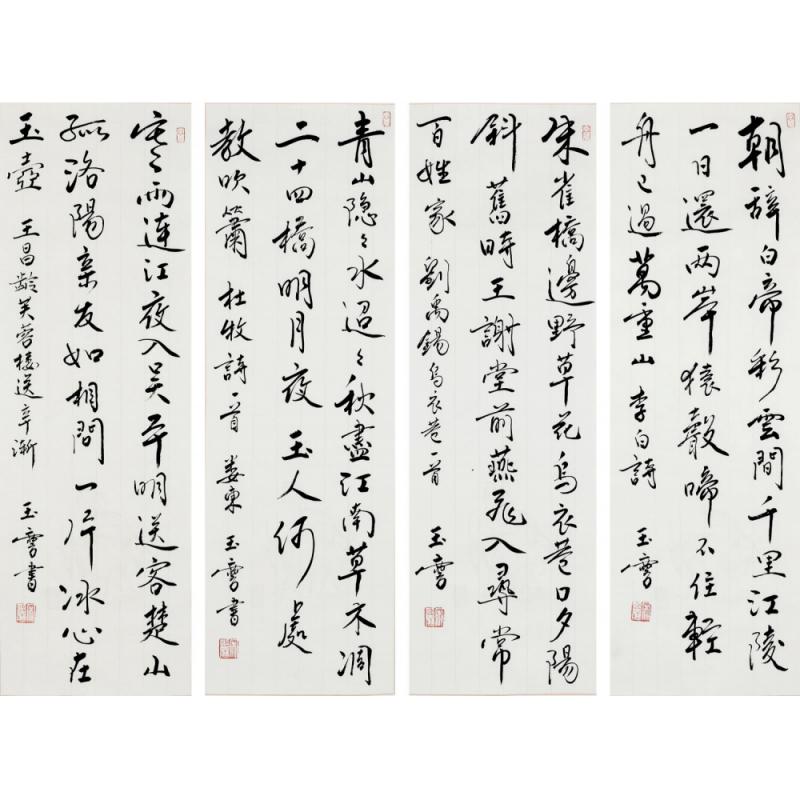 朝辭白帝彩雲間千里江陵
一日還两岸猿聲啼不住輕
舟已過萬重山 李白詩 玉
朱雀橋邊野草花烏衣巷口夕陽
斜舊時王謝堂前燕飛入尋常
百姓家 劉禹錫烏衣巷一首 玉
青山隐々水迢々秋盡江南草木凋
二十四橋明月夜玉人何處
教吹簫 杜牧詩一首 婁東 玉 書
寒雨連江夜入吴平明送客楚山
孤洛陽亲友如相問一片冰心在
玉壺 王昌龄芙蓉楼送辛漸 玉 書